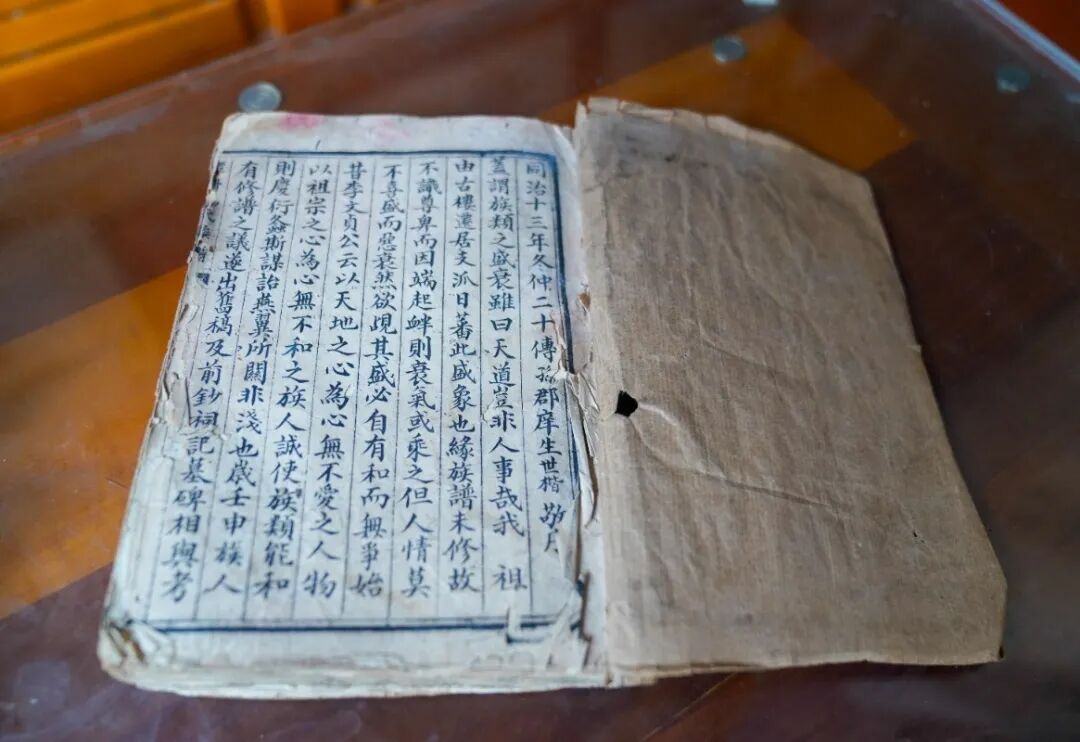 同治十三年冬仲二十傳孫郡庠生世楷敬
蓋謂族類之盛衰雖曰天道豈非人事哉我 祖
由古樓遷居支派日蕃此盛象也緣族譜未修故
不識尊卑而因端起衅則衰氣或乘之但人情莫
不喜盛而惡衰然欲覘其盛必自有和而無爭始
昔李文貞公云以天地之心為心無不愛之人物
以祖宗之心為心無不和之族人誠使族類能和
則慶衍螽斯謀詒燕翼所關非淺也歲壬申族人
有修譜之議遂出舊稿及前鈔祠記墓碑相與考